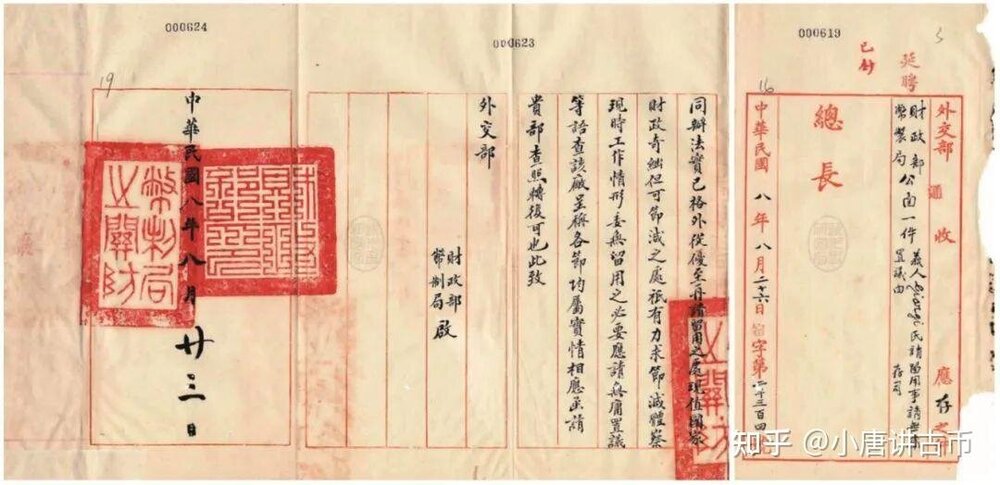 000619
5
延聘
已抄
外交部 通 收
應存之
財政部
幣製局
公函一件
義人
氏請留用事請毋庸
置議由
存司
總長
16
中華民國 八年 八月 二十六日
字第
三百四
000623
同辦法實已格外從優至再請留用之處現值國家
財政奇絀但可節減之處祇有力求節減體察
現時工作情形委無留用之必要應請無庸置議
等語查該廠呈稱各節均屬實情相應函請
貴部查照轉復可也此致
外交部
財政部
幣制局 啟
000624
19
中華民國八年八月廿三日
幣制局
之關防
知乎 @小唐讲古币